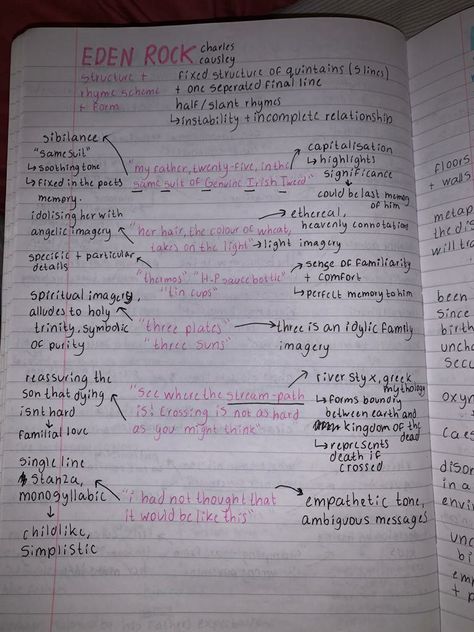 EDEN ROCK charles
causley
structure +
rhyme scheme
+ form
fixed structure of quintains (5 lines)
+ one seperated final line
half/slant rhymes
↳instability + incomplete relationship
sibilance
"same suit"
↳soothing tone
↳fixed in the poets
memory.
"my father, twenty-five, in the
same suit of Genuine Irish Tweed"
capitalisation
↳highlights
significance
could be last memory
of him
idolising her with
angelic imagery
"her hair, the colour of wheat,
takes on the light"
↳light imagery
ethereal,
heavenly connotations
specific + particular
details
"thermos" "H.P sauce bottle"
"tin cups"
sense of familiarity
+ comfort
↳perfect memory to him
spiritual imagery,
alludes to holy
trinity, symbolic
of purity
"three plates"
"three suns"
three is an idylic family
imagery
reassuring the
son that dying
isnt hard
familial love
"see where the stream-path
is! Crossing is not as hard
as you might think"
river styx, greek
mythology
↳forms boundry
between earth and
kingdom of the
dead
↳represents
death if
crossed
single line
stanza,
monosyllabic
childlike,
simplistic
"i had not thought that
it would be like this"
empathetic tone,
ambiguous messages
floors
+ walls
metap
the dis
will tra
been
since
birth
uncha
secu
oxym
caes
disor
in a
envi
unc
bi
emp
+ p